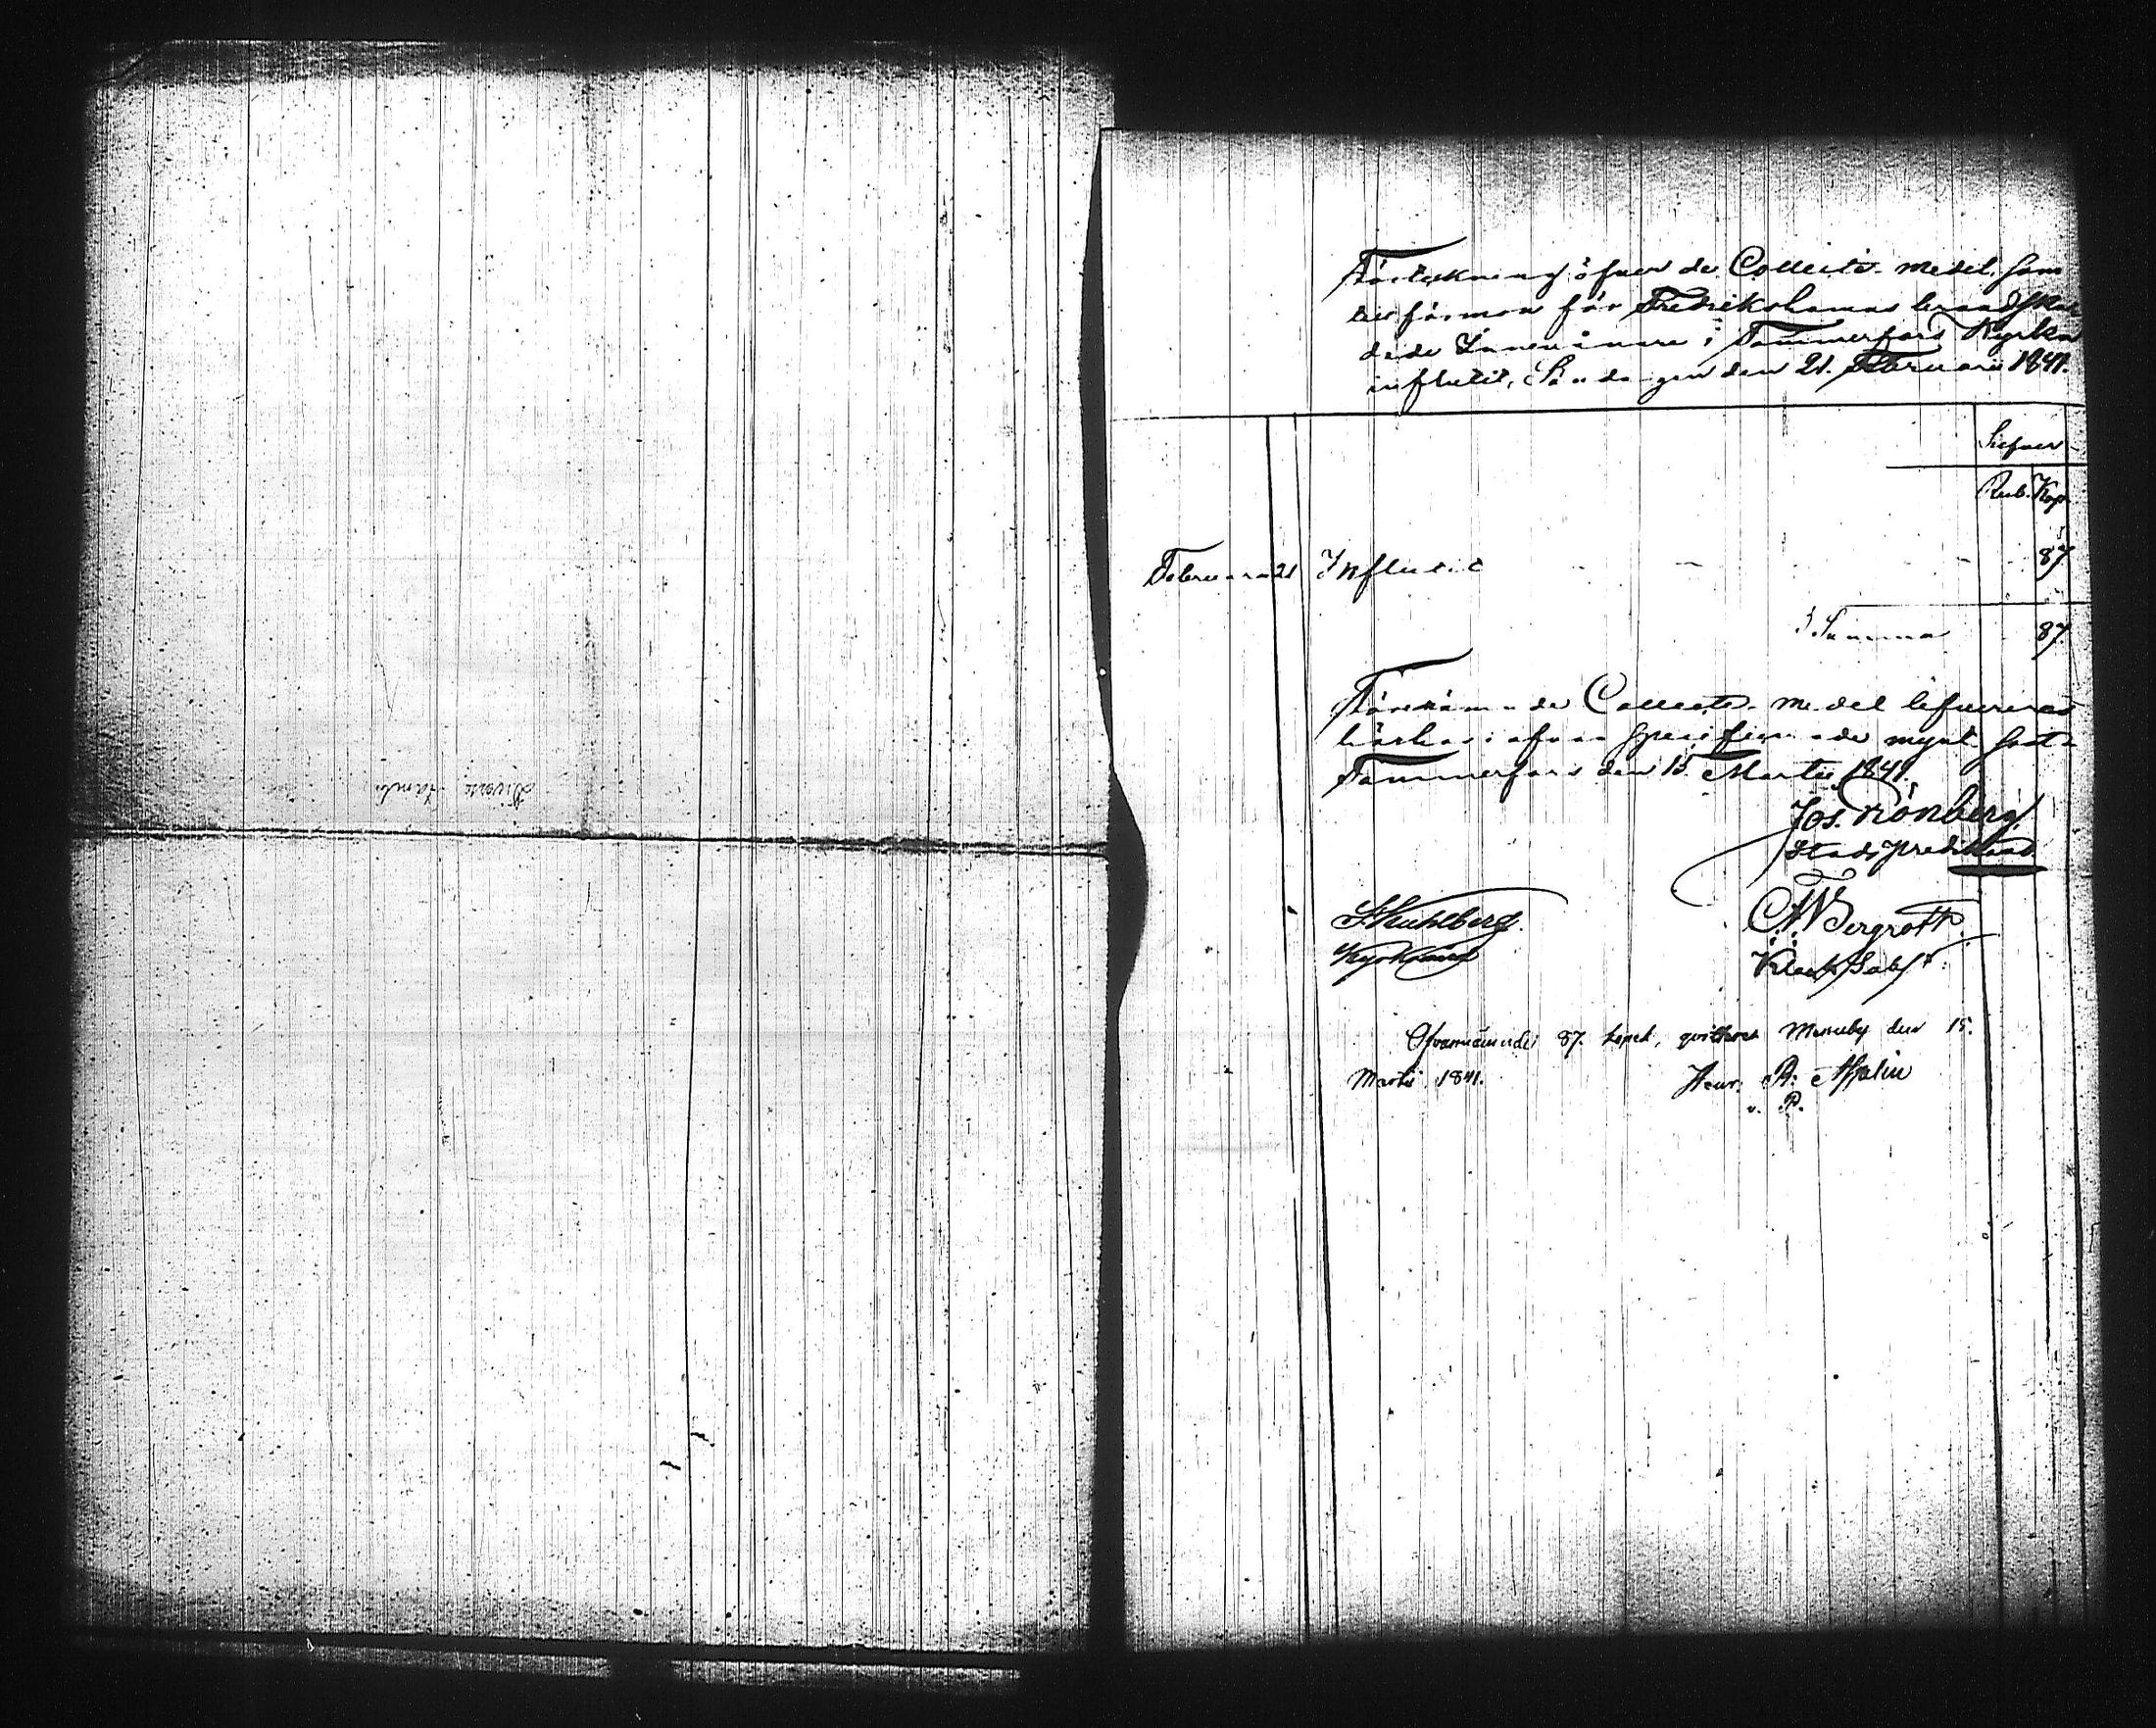 Förtekning öfver de Collects-medel, som
till förmon för Fredrikshamns brandska-
dade Innevånare i Tammerfors Kyrka
influtit, Söndagen den 21. Februarii 1841.
Silfver
Rub. Kop.
Februarii 21 Influtit - - - - 87.
Summa 87.
Förenämnde Collects-medel lefvereras
härhos i ofvan specificerade mynt som
Tammerfors den 15 Martii 1841.
Jos. Grönberg
Stads predikant
Kuhlberg
Kyrkvärd
Bergroth
Ofvannämnde 87. kopek, qvitteras Messuby den 15.
Martii 1841. Henr. R: Malin
v. P.
Diverse